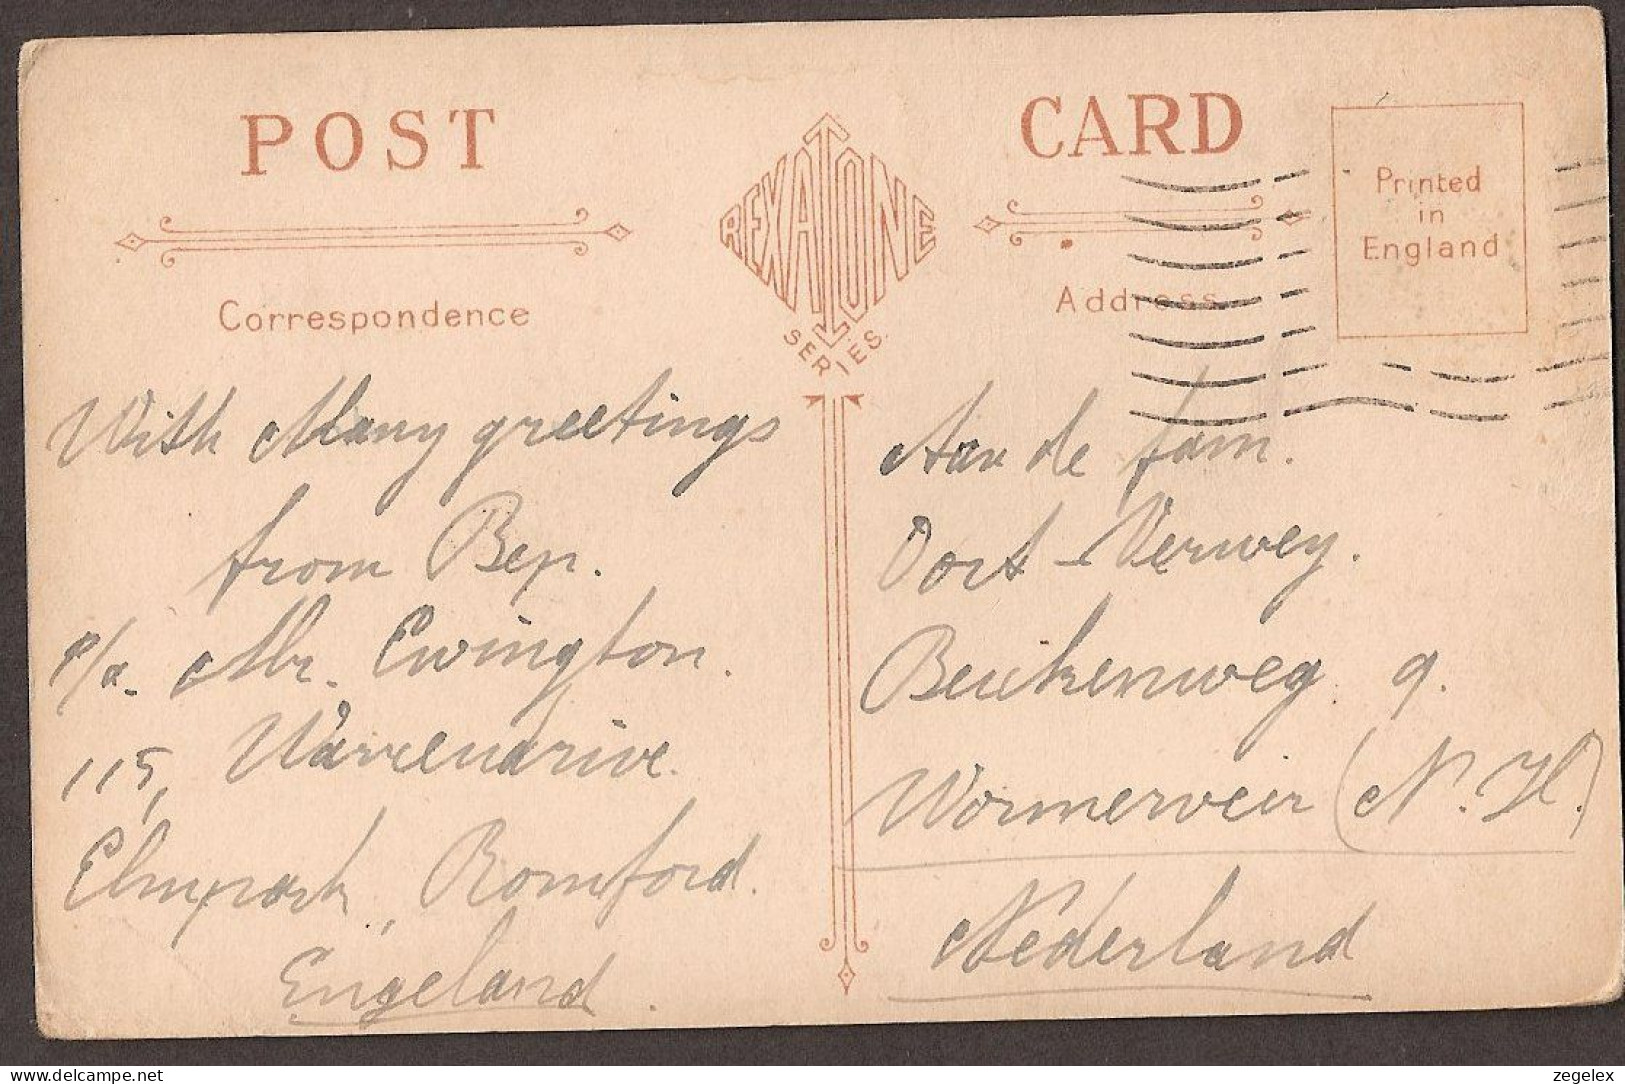 POST CARD
REXATONE
SERIES.
Printed
in
England
Correspondence
Address
With Many greetings
from Bep.
p/a. Mr. Ewington.
115, Warrendrive.
Elmpark, Romford.
Engeland.
Aan de fam.
Oort-Verwey.
Beukenweg 9.
Wormerveer (N.H.)
Nederland
zegelex